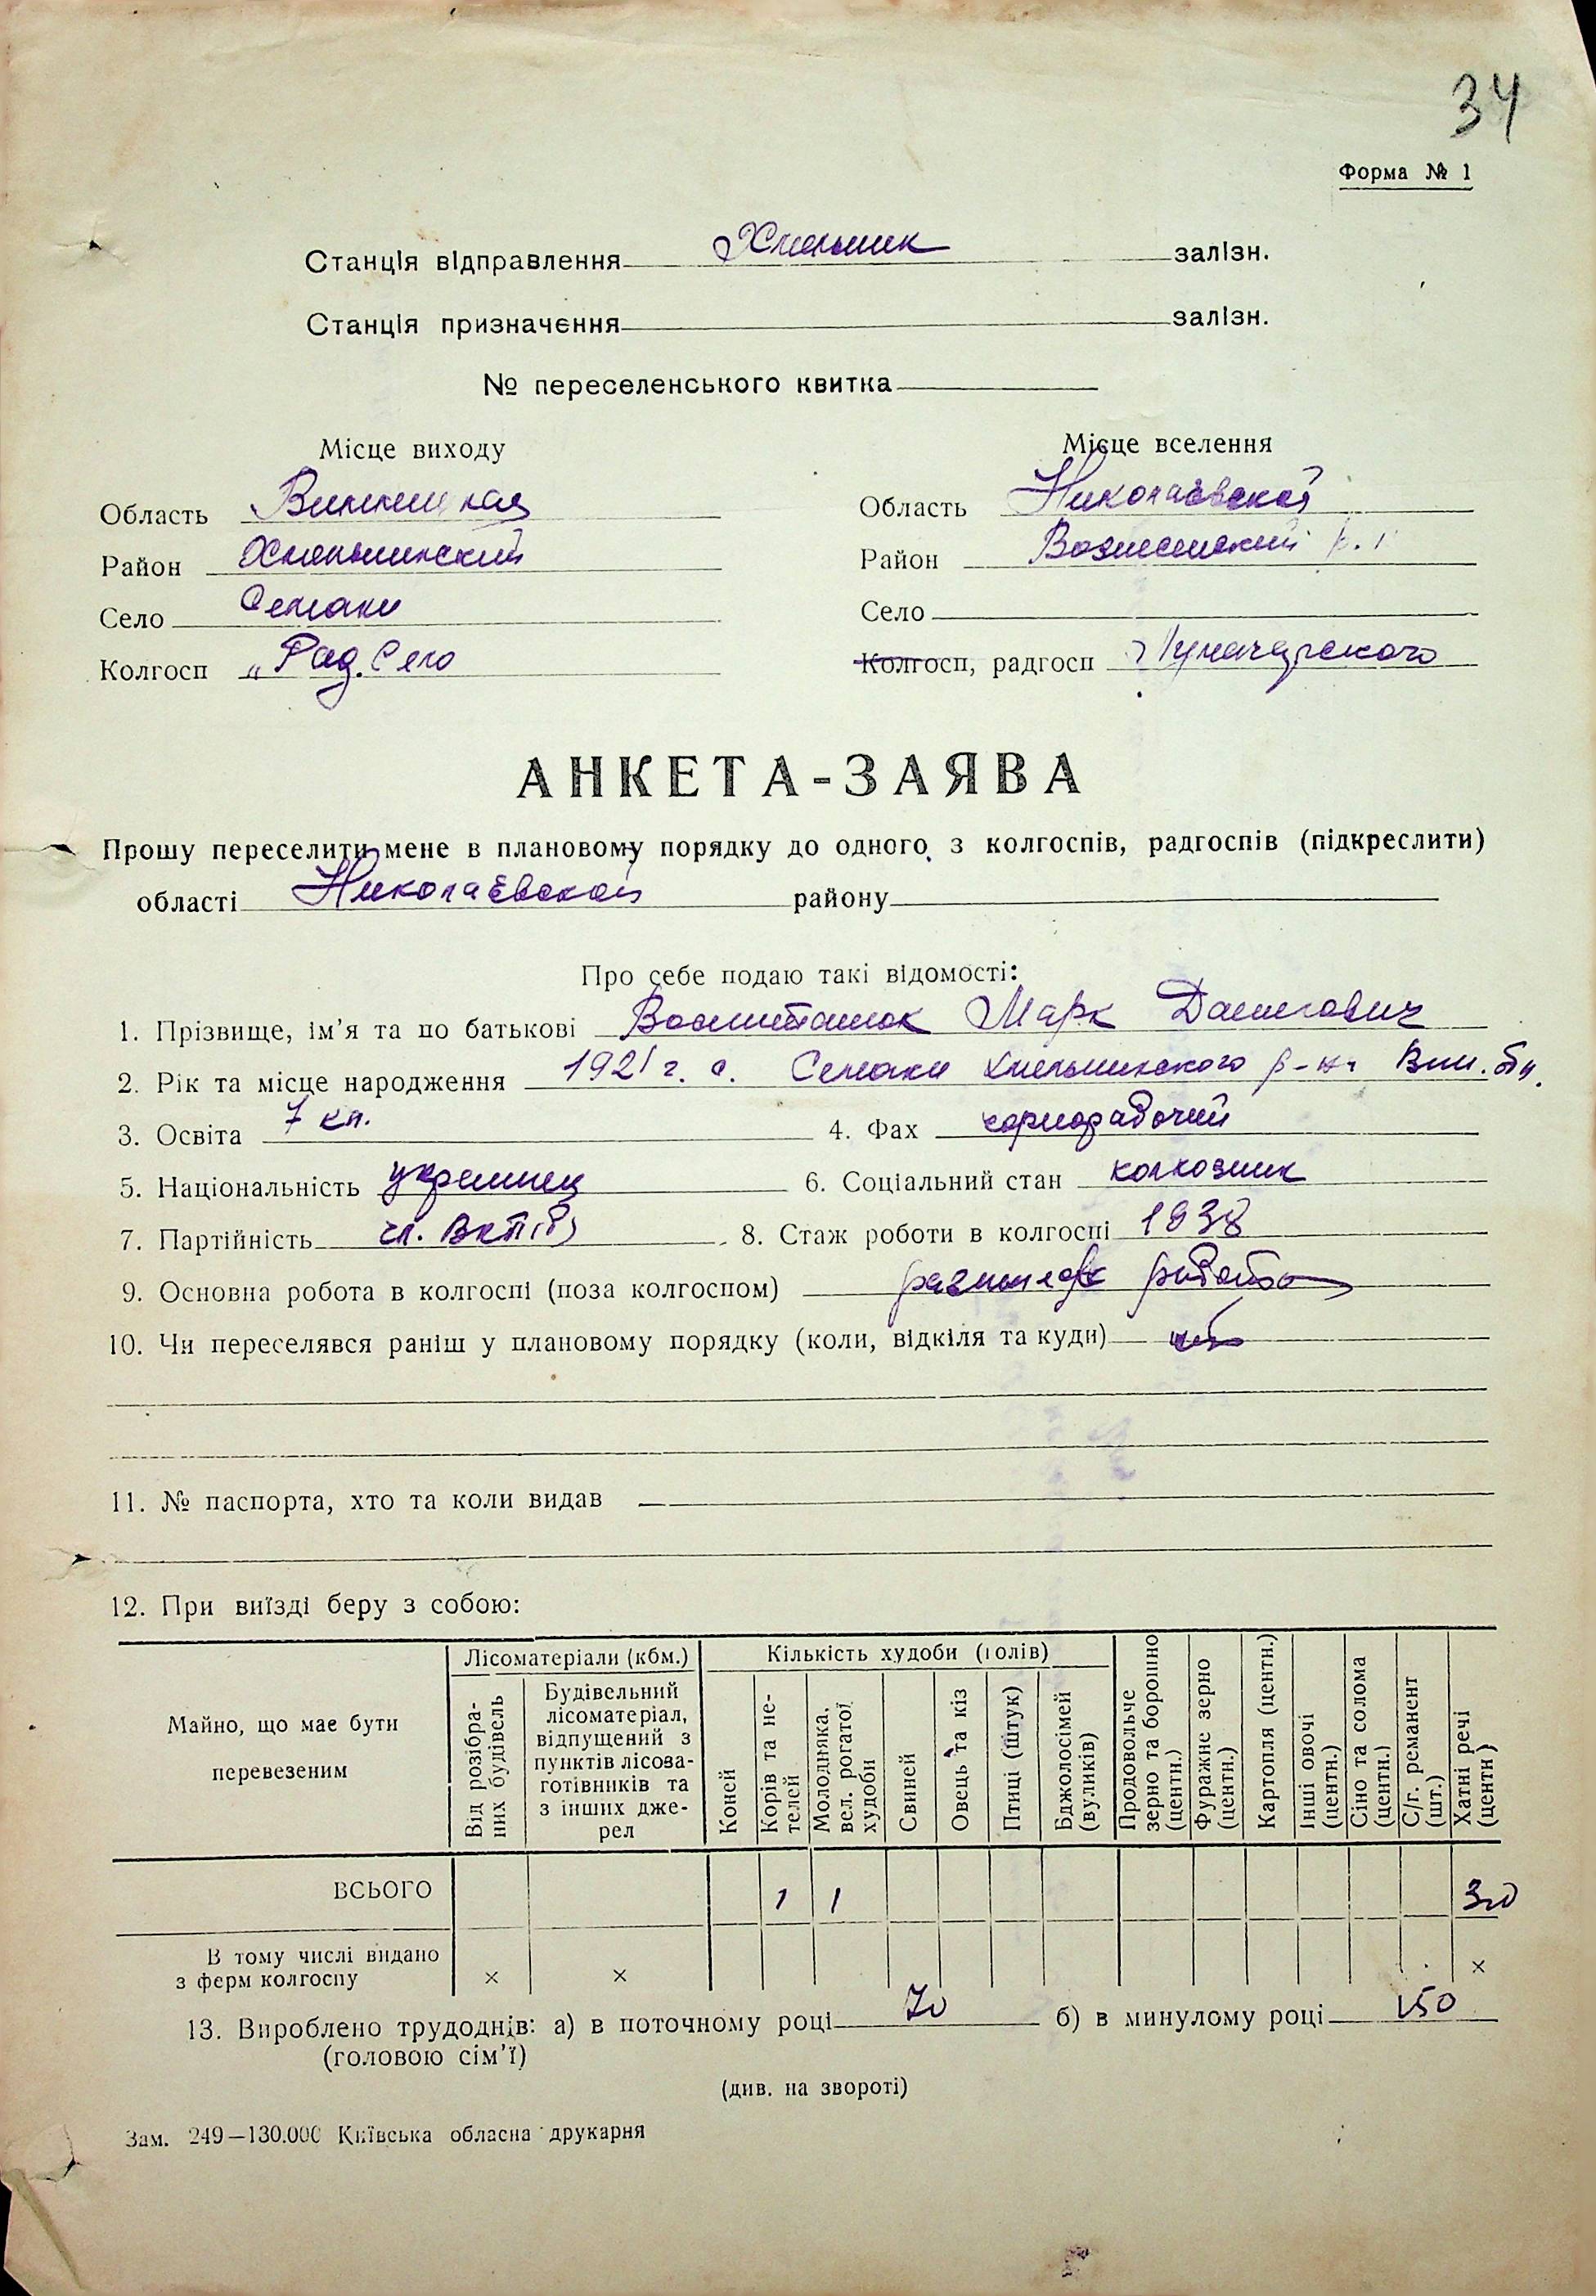 34
Форма № 1
Станція відправлення Хмельник залізн.
Станція призначення залізн.
№ переселенського квитка
Місце виходу
Місце вселення
Область Винницкая
Область Николаевской
Район Хмельникский
Район Вознесенский р.н
Село Семаки
Село
Колгосп „Рад. Село
Колгосп, радгосп Луначарского
АНКЕТА-ЗАЯВА
Прошу переселити мене в плановому порядку до одного з колгоспів, радгоспів (підкреслити)
області Николаевской району
Про себе подаю такі відомості:
1. Прізвище, ім’я та по батькові Марк Данилович
2. Рік та місце народження 1921 г. с. Семаки Хмельникского р-на Вин. обл.
3. Освіта 7 кл.
4. Фах чернорабочий
5. Національність украинец
6. Соціальний стан колхозник
7. Партійність чл. ВКП(б)
8. Стаж роботи в колгоспі 1938
9. Основна робота в колгоспі (поза колгоспом) работа
10. Чи переселявся раніш у плановому порядку (коли, відкіля та куди) нет
11. № паспорта, хто та коли видав —
12. При виїзді беру з собою:
Майно, що має бути перевезеним
Лісоматеріали (кбм.)
Кількість худоби (голів)
Від розібраних будівель
Будівельний лісоматеріал, відпущений з пунктів лісозаготівників та з інших джерел
Коней
Корів та нетелей
Молодняка, вел. рогатої худоби
Свиней
Овець та кіз
Птиці (штук)
Бджолосімей (вуликів)
Продовольче зерно та борошно (центн.)
Фуражне зерно (центн.)
Картопля (центн.)
Інші овочі (центн.)
Сіно та солома (центн.)
С/г. реманент (шт.)
Хатні речі (центн)
ВСЬОГО 1 1 30
В тому числі видано
з ферм колгоспу × × ×
13. Вироблено трудоднів: а) в поточному році 70 б) в минулому році 150
(головою сім’ї)
(див. на звороті)
Зам. 249—130.000 Київська обласна друкарня